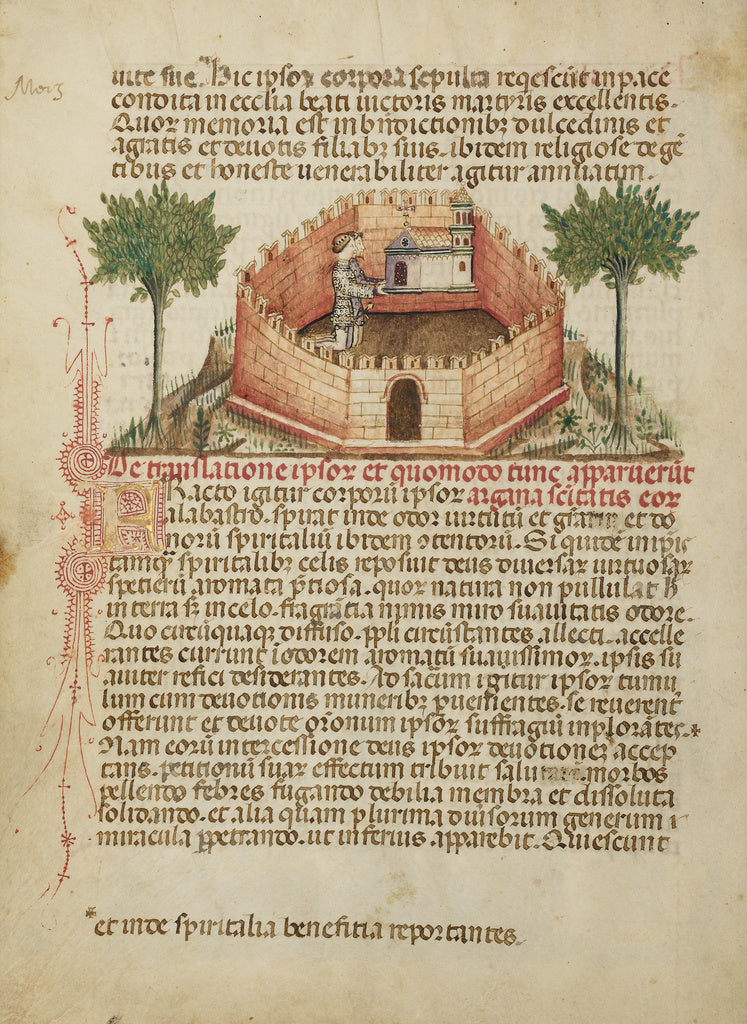 uite sue. Hic ipsoꝝ corpora sepulta reqescūt in pace
condita in ecclīa beati uictoris martyris excellentis.
Quoꝝ memoria est in bn̄dictionibꝫ dulcedinis et
agratis et deuotis filiabꝫ suis. ibidem religiose degē
tibus et honeste uenerabiliter agitur annuatim.
De translatione ipsoꝝ et quomodo tunc apparuerūt
Facto igitur corporū ipsoꝝ argana scitatis eor
alabastro. spirat inde odor uirtutū et et do
norū spiritaliū ibidem ꝯtentorū. Si quidē in ipis
tamqꝫ spiritalibꝫ celis reposuit deus diuersaꝝ uirtuosaꝝ
specierū aromata p̄tiosa. quoꝝ natura non pullulat
in terra sꝫ in celo. fragrātia nimis miro suauitatis odore.
Quo circūquaqꝫ diffuso. ppli circūstantes allecti. accelle
rantes currunt ī odorem aromatū suauissimoꝝ. ipsis su
auiter refici desiderantes. Ad sacum igitur ipsoꝝ tumu
lum cum deuotionis muneribꝫ ꝑuenientes. se reuerent̄
offerunt et deuote or̄onum ipsoꝝ suffragiū inplorātes.*
Nam eorū intercessione deus ipsoꝝ deuotiones accep
tans. petitionū suaꝝ effectum tribuit morbos
pellendo febres fugando debilia membra et dissoluta
solidando. et alia quam plurima diuisorum generum
miracula ꝑpetrando. ut inferius apparebit. Quiescunt
*et inde spiritalia benefitia reportantes.